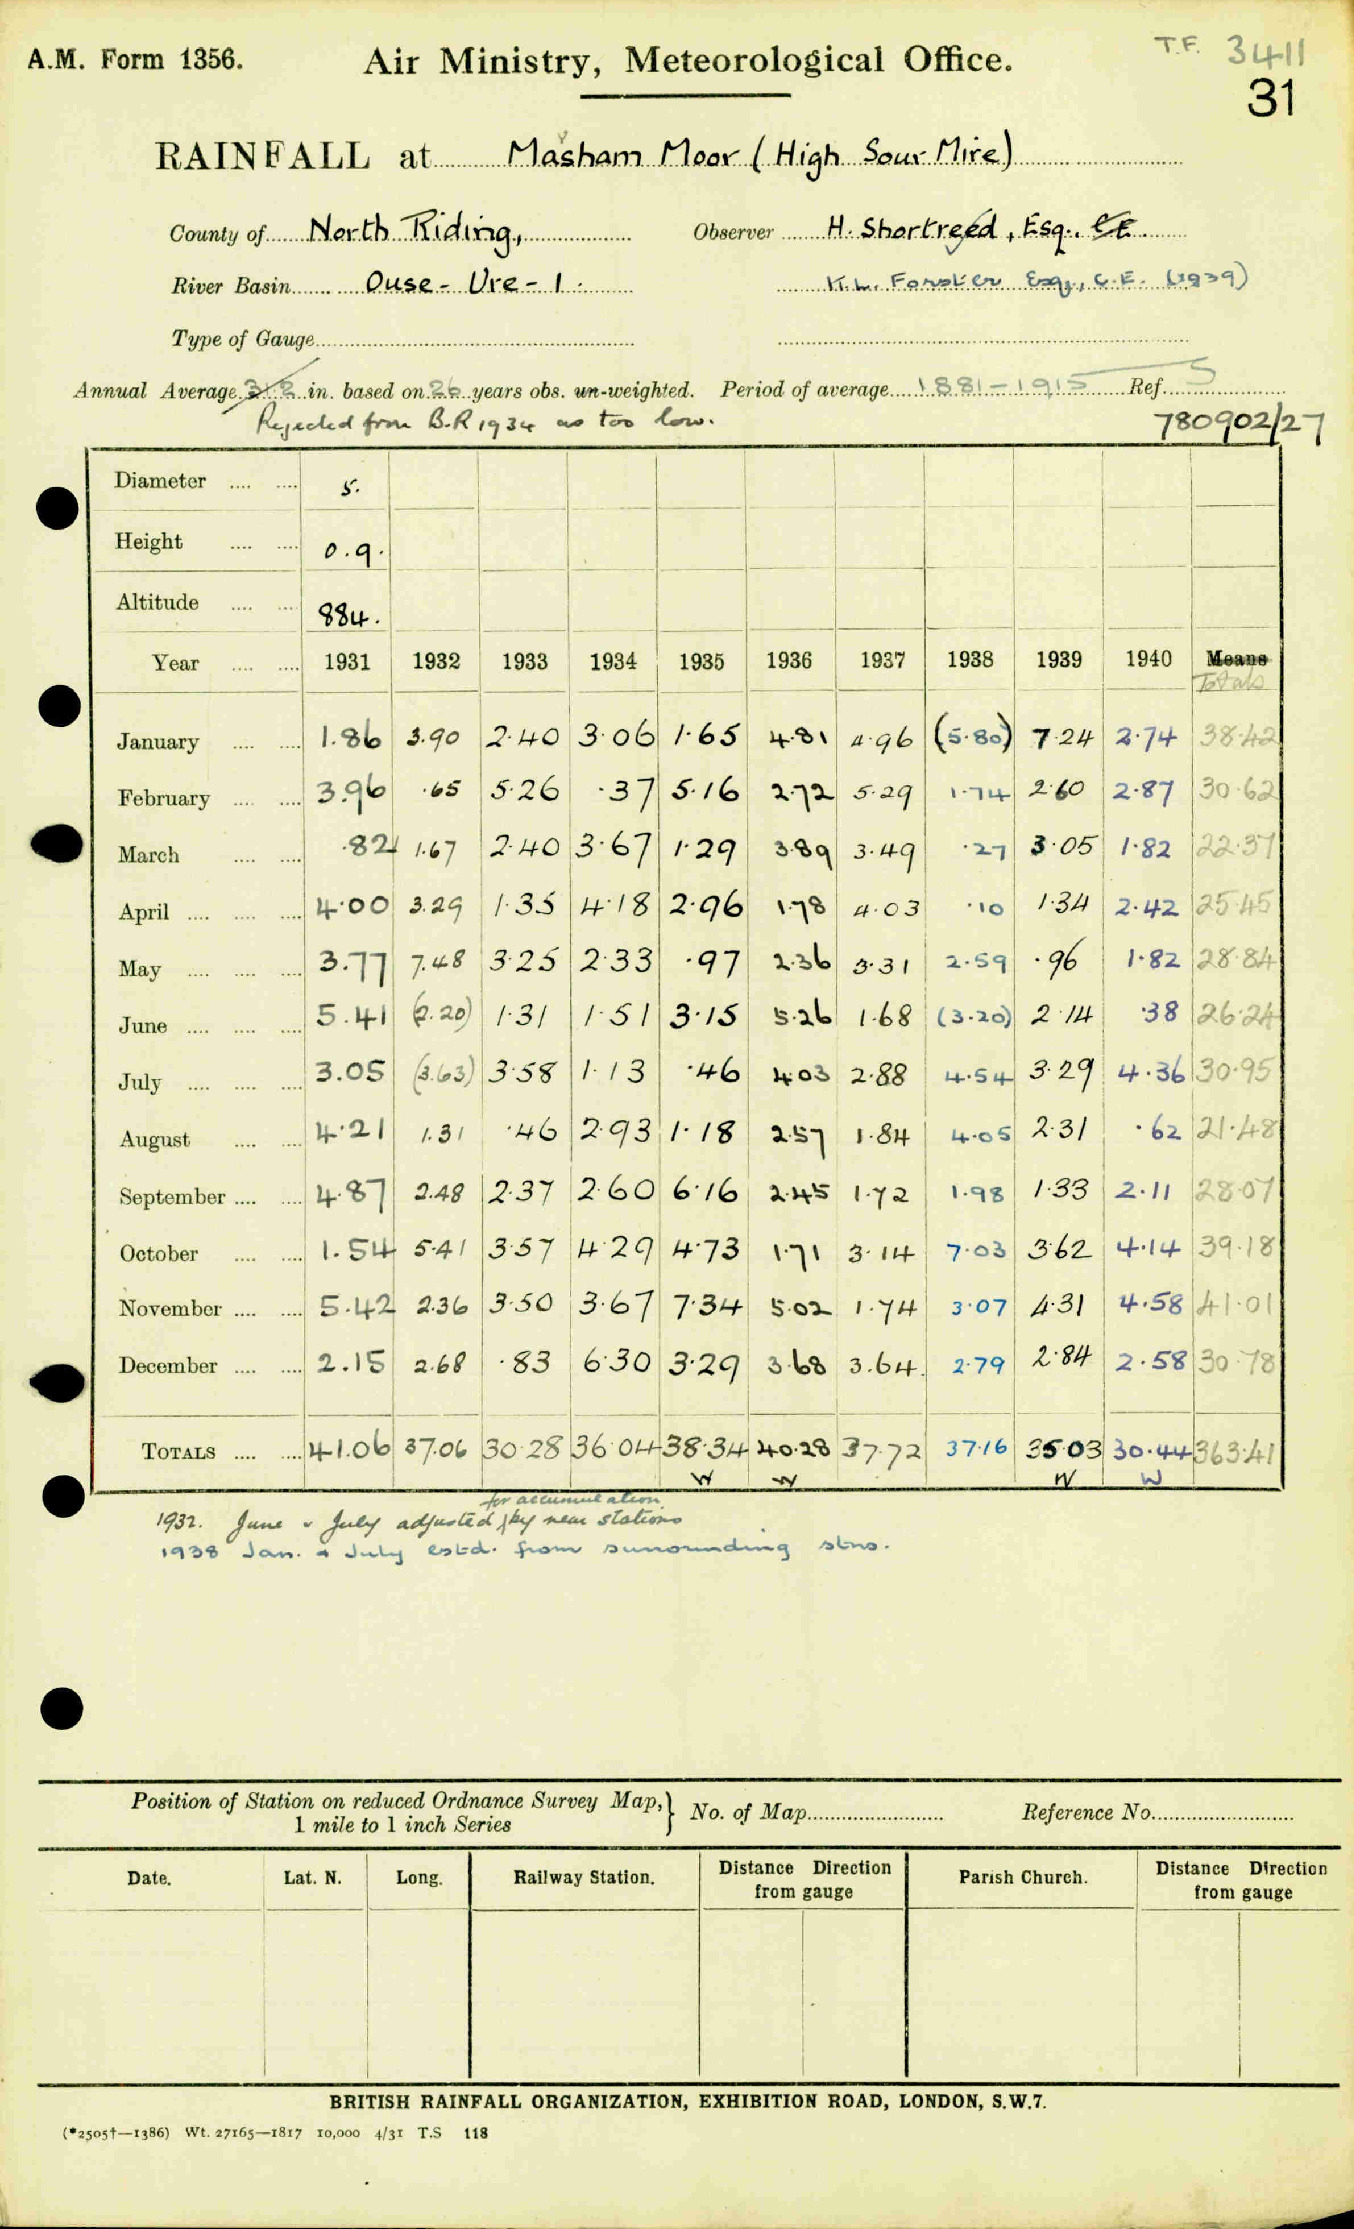 A.M. Form 1356.
Air Ministry, Meteorological Office.
T.F. 3411
31
RAINFALL at Masham Moor (High Sour Mire)
County of North Riding,
Observer H. Shortreed, Esq., C.E.
River Basin Ouse - Ure - 1.
K.L. Forster Esq., C.E. (1939)
Type of Gauge
Annual Average 31.2 in. based on 26 years obs. un-weighted. Period of average 1881-1915 Ref. 5
Rejected from B.R 1934 as too low.
780902/27
Diameter 5.
Height 0.9.
Altitude 884.
Year 1931 1932 1933 1934 1935 1936 1937 1938 1939 1940 Means
Totals
January 1.86 3.90 2.40 3.06 1.65 4.81 4.96 (5.80) 7.24 2.74 38.42
February 3.96 .65 5.26 .37 5.16 2.72 5.29 1.74 2.60 2.87 30.62
March .82 1.67 2.40 3.67 1.29 3.89 3.49 .27 3.05 1.82 22.37
April 4.00 3.29 1.35 4.18 2.96 1.78 4.03 .10 1.34 2.42 25.45
May 3.77 7.48 3.25 2.33 .97 2.36 3.31 2.59 .96 1.82 28.84
June 5.41 (2.20) 1.31 1.51 3.15 5.26 1.68 (3.20) 2.14 .38 26.24
July 3.05 (3.63) 3.58 1.13 .46 4.03 2.88 4.54 3.29 4.36 30.95
August 4.21 1.31 .46 2.93 1.18 2.57 1.84 4.05 2.31 .62 21.48
September 4.87 2.48 2.37 2.60 6.16 2.45 1.72 1.98 1.33 2.11 28.07
October 1.54 5.41 3.57 4.29 4.73 1.71 3.14 7.03 3.62 4.14 39.18
November 5.42 2.36 3.50 3.67 7.34 5.02 1.74 3.07 4.31 4.58 41.01
December 2.15 2.68 .83 6.30 3.29 3.68 3.64 2.79 2.84 2.58 30.78
TOTALS 41.06 37.06 30.28 36.04 38.34 40.28 37.72 37.16 35.03 30.44 363.41
W W W W
for accumulation
1932. June & July adjusted by near stations
1938 Jan. & July estd. from surrounding stns.
Position of Station on reduced Ordnance Survey Map,
1 mile to 1 inch Series
No. of Map
Reference No.
Date. Lat. N. Long. Railway Station. Distance Direction from gauge Parish Church. Distance Direction from gauge
BRITISH RAINFALL ORGANIZATION, EXHIBITION ROAD, LONDON, S.W.7.
(*2505†—1386) Wt. 27165—1817 10,000 4/31 T.S 118